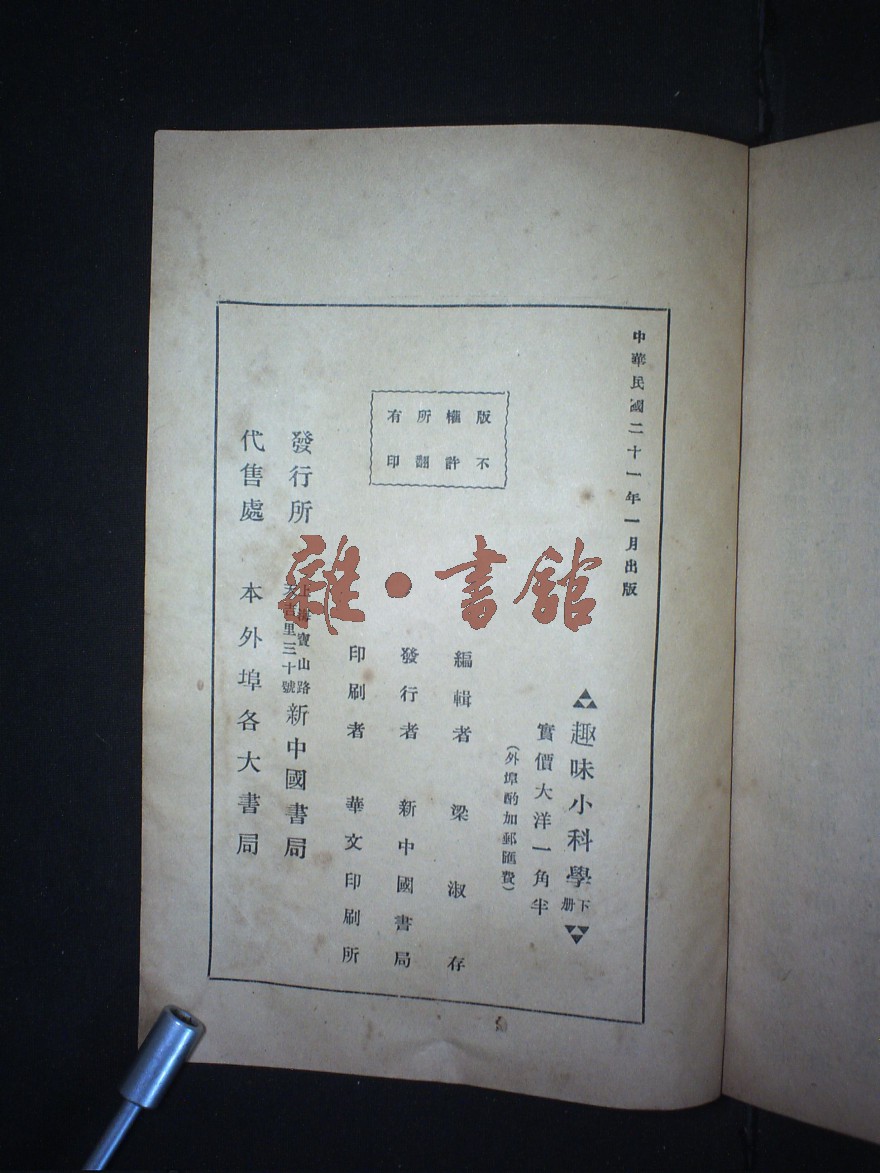 中華民國二十一年一月出版
版權所有
不許翻印
趣味小科學下册
實價大洋一角半
（外埠酌加郵匯費）
編輯者 梁淑存
發行者 新中國書局
印刷者 華文印刷所
發行所
上海寶山路
吉里三十號
新中國書局
代售處 本外埠各大書局
雜·書館